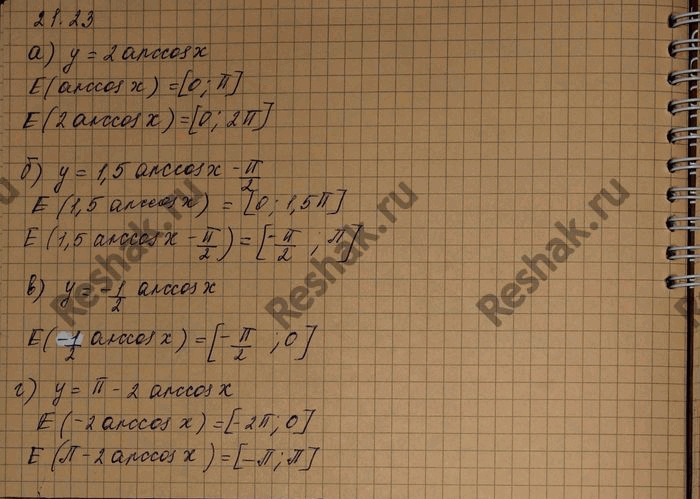 21.23
а) y = 2 arccos x
E(arccos x) = [0; π]
E(2 arccos x) = [0; 2π]
б) y = 1,5 arccos x - π/2
E(1,5 arccos x) = [0; 1,5π]
E(1,5 arccos x - π/2) = [-π/2 ; π]
в) y = -1/2 arccos x
E(-1/2 arccos x) = [-π/2 ; 0]
г) y = π - 2 arccos x
E(-2 arccos x) = [-2π; 0]
E(π - 2 arccos x) = [-π; π]
Reshak.ru
Reshak.ru
Reshak.ru
Reshak.ru
Reshak.ru